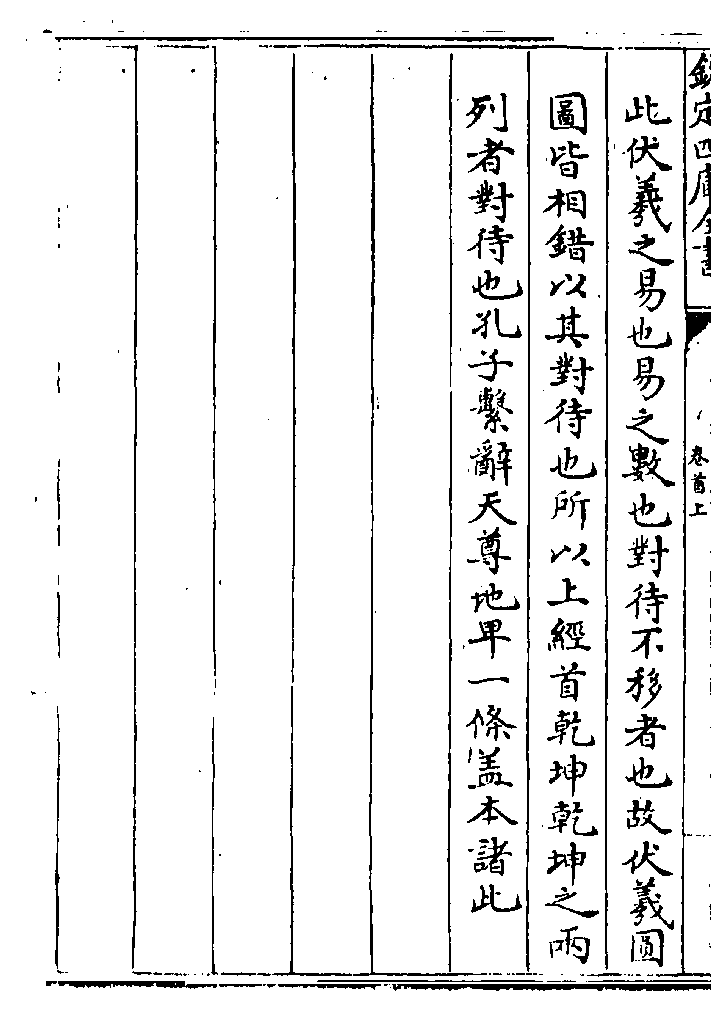 欽定四庫全書
卷首上
此伏羲之易也易之數也對待不移者也故伏羲圓
圖皆相錯以其對待也所以上經首乾坤乾坤之兩
列者對待也孔子繫辭天尊地卑一條盖本諸此